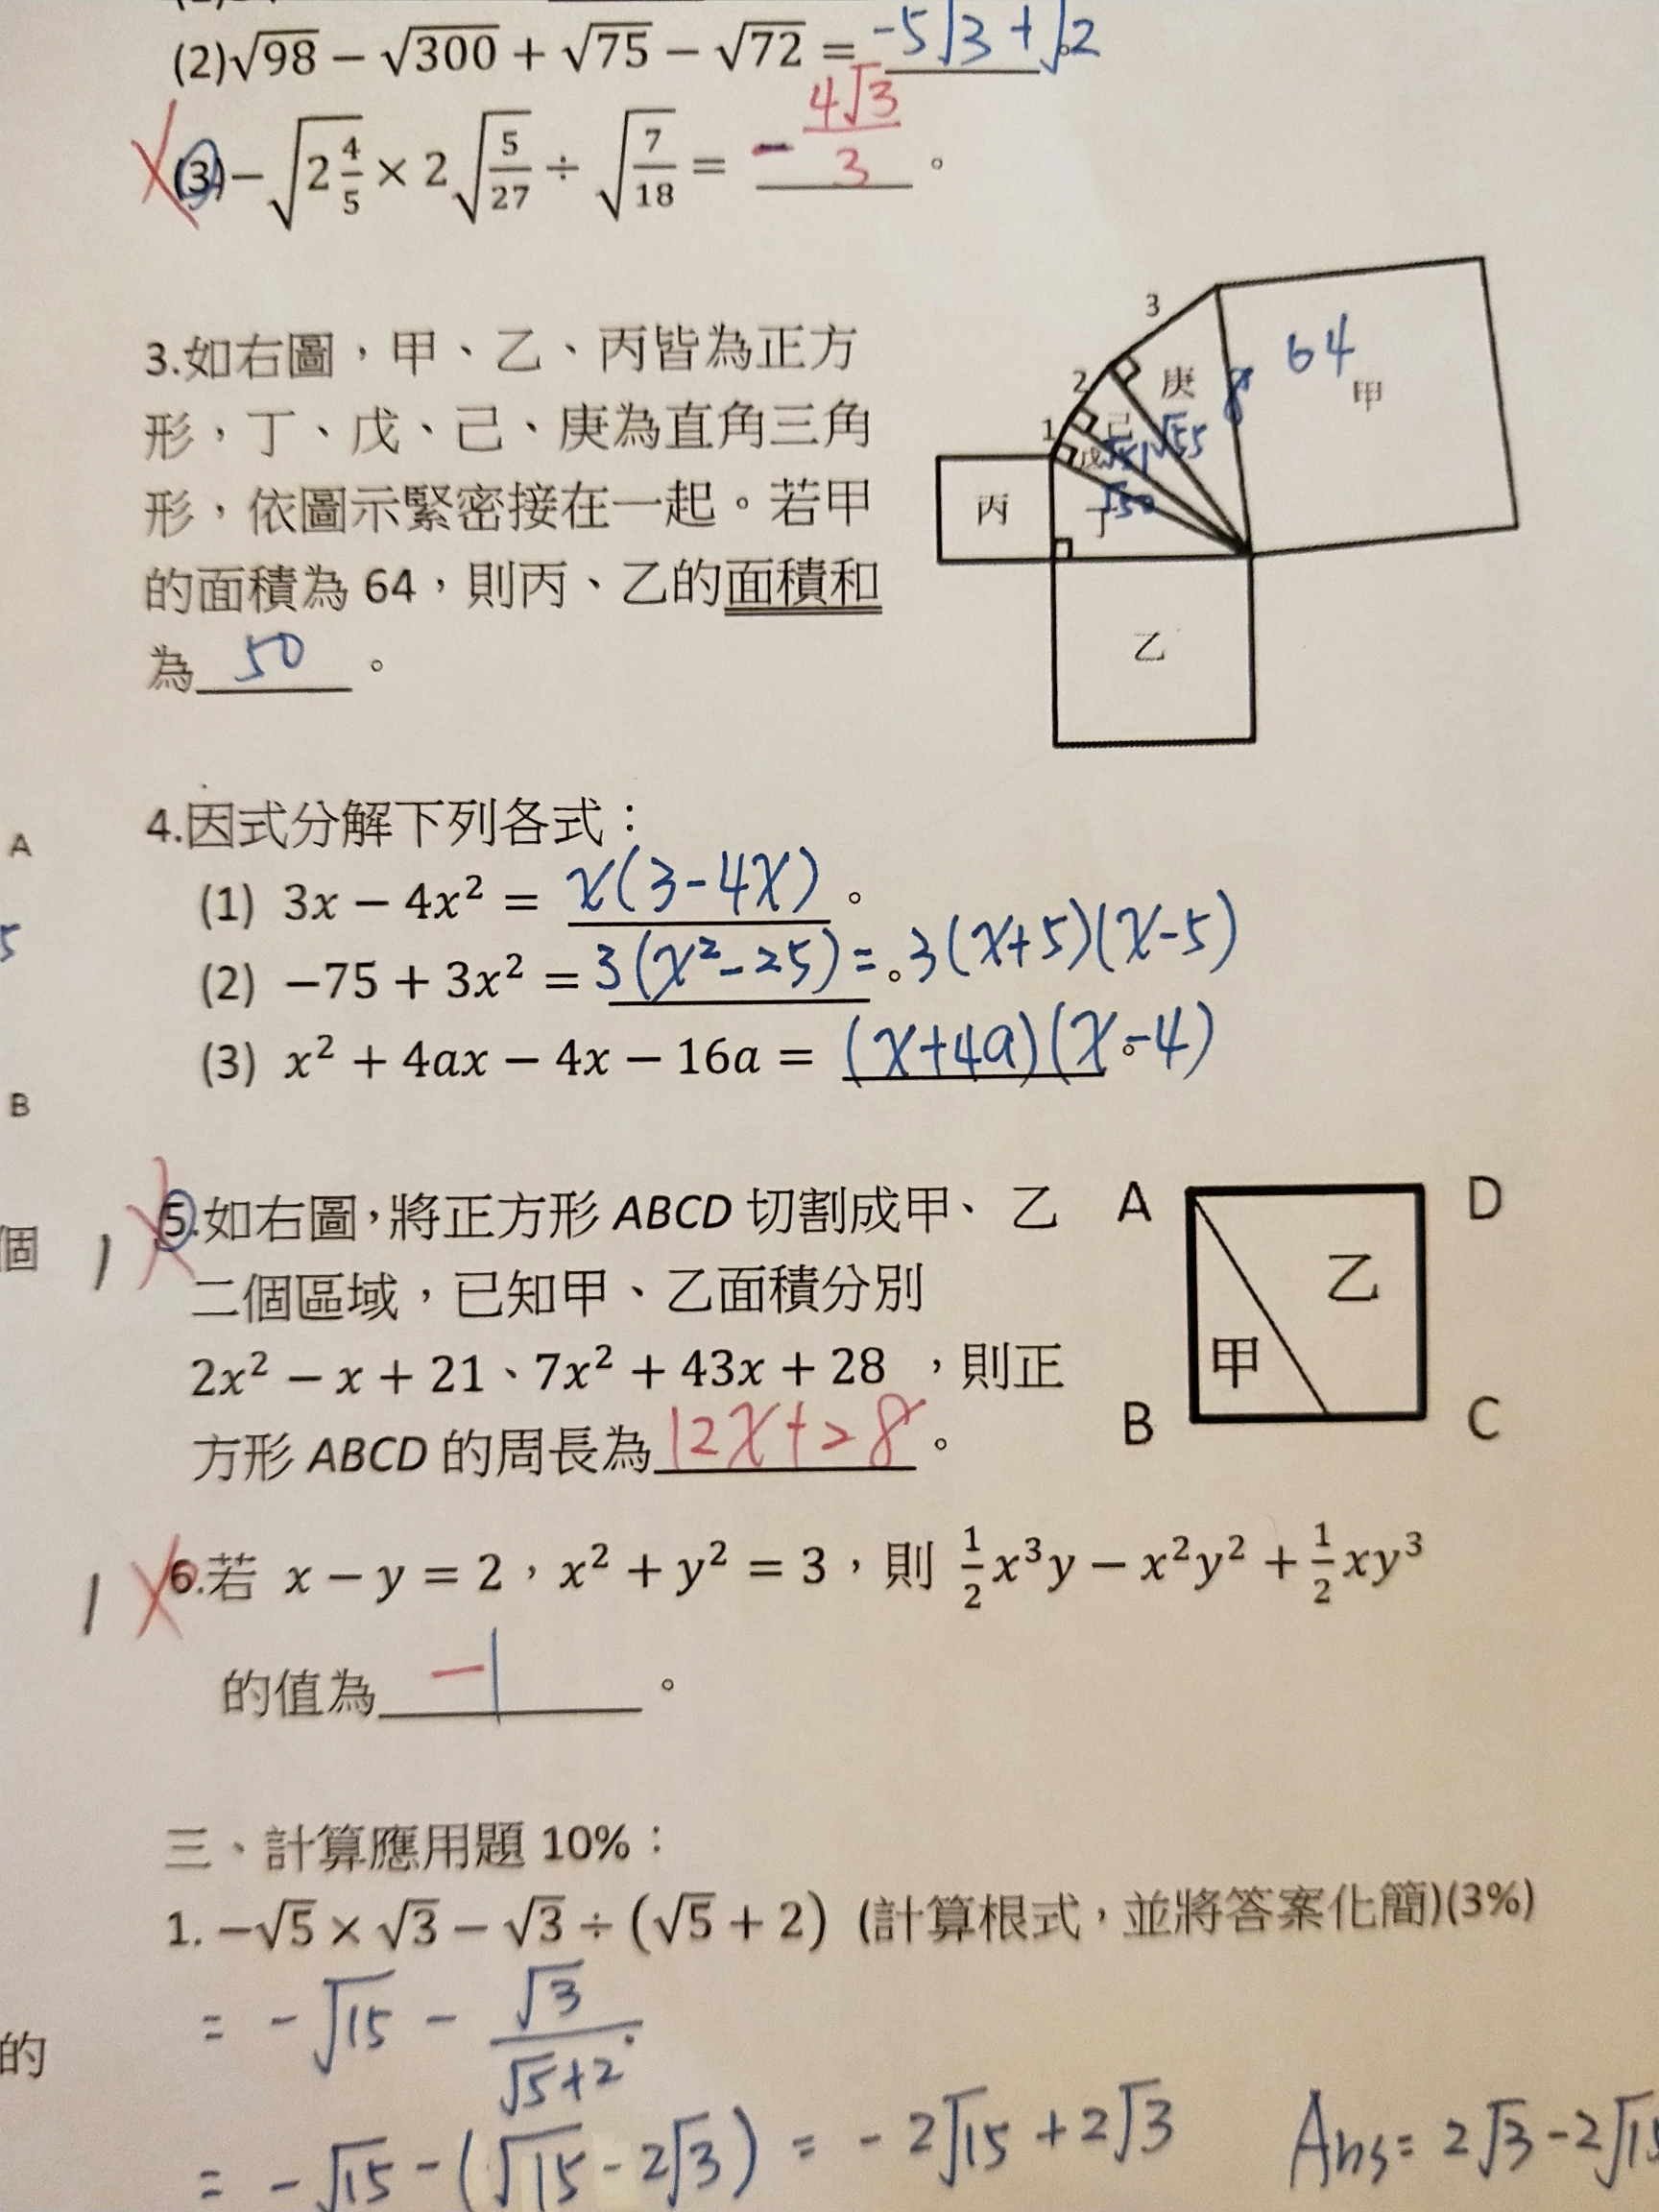 (2)√98 − √300 + √75 − √72 = -5√3 + √2。
(3) −√(2 4/5) × 2√(5/27) ÷ √(7/18) = - 4√3/3 。
3.如右圖，甲、乙、丙皆為正方
形，丁、戊、己、庚為直角三角
形，依圖示緊密接在一起。若甲
的面積為 64，則丙、乙的面積和
為 50 。
3
2
1
庚
己
戊
丁
丙
甲
乙
64
8
√55
√51
√50
4.因式分解下列各式：
(1) 3x − 4x² = x(3-4x) 。
(2) −75 + 3x² = 3(x²-25) = 。3(x+5)(x-5)
(3) x² + 4ax − 4x − 16a = (x+4a)(x-4)。
A
5
B
個
1
5.如右圖，將正方形 ABCD 切割成甲、乙
二個區域，已知甲、乙面積分別
2x² − x + 21、7x² + 43x + 28 ，則正
方形 ABCD 的周長為 12x+28 。
A
D
乙
甲
B
C
1
6.若 x − y = 2，x² + y² = 3，則 1/2 x³y − x²y² + 1/2 xy³
的值為 -1 。
三、計算應用題 10%：
1. −√5 × √3 − √3 ÷ (√5 + 2) (計算根式，並將答案化簡)(3%)
= -√15 - √3/(√5+2)
的
= -√15 - (√15 - 2√3) = -2√15 + 2√3 Ans= 2√3-2√15